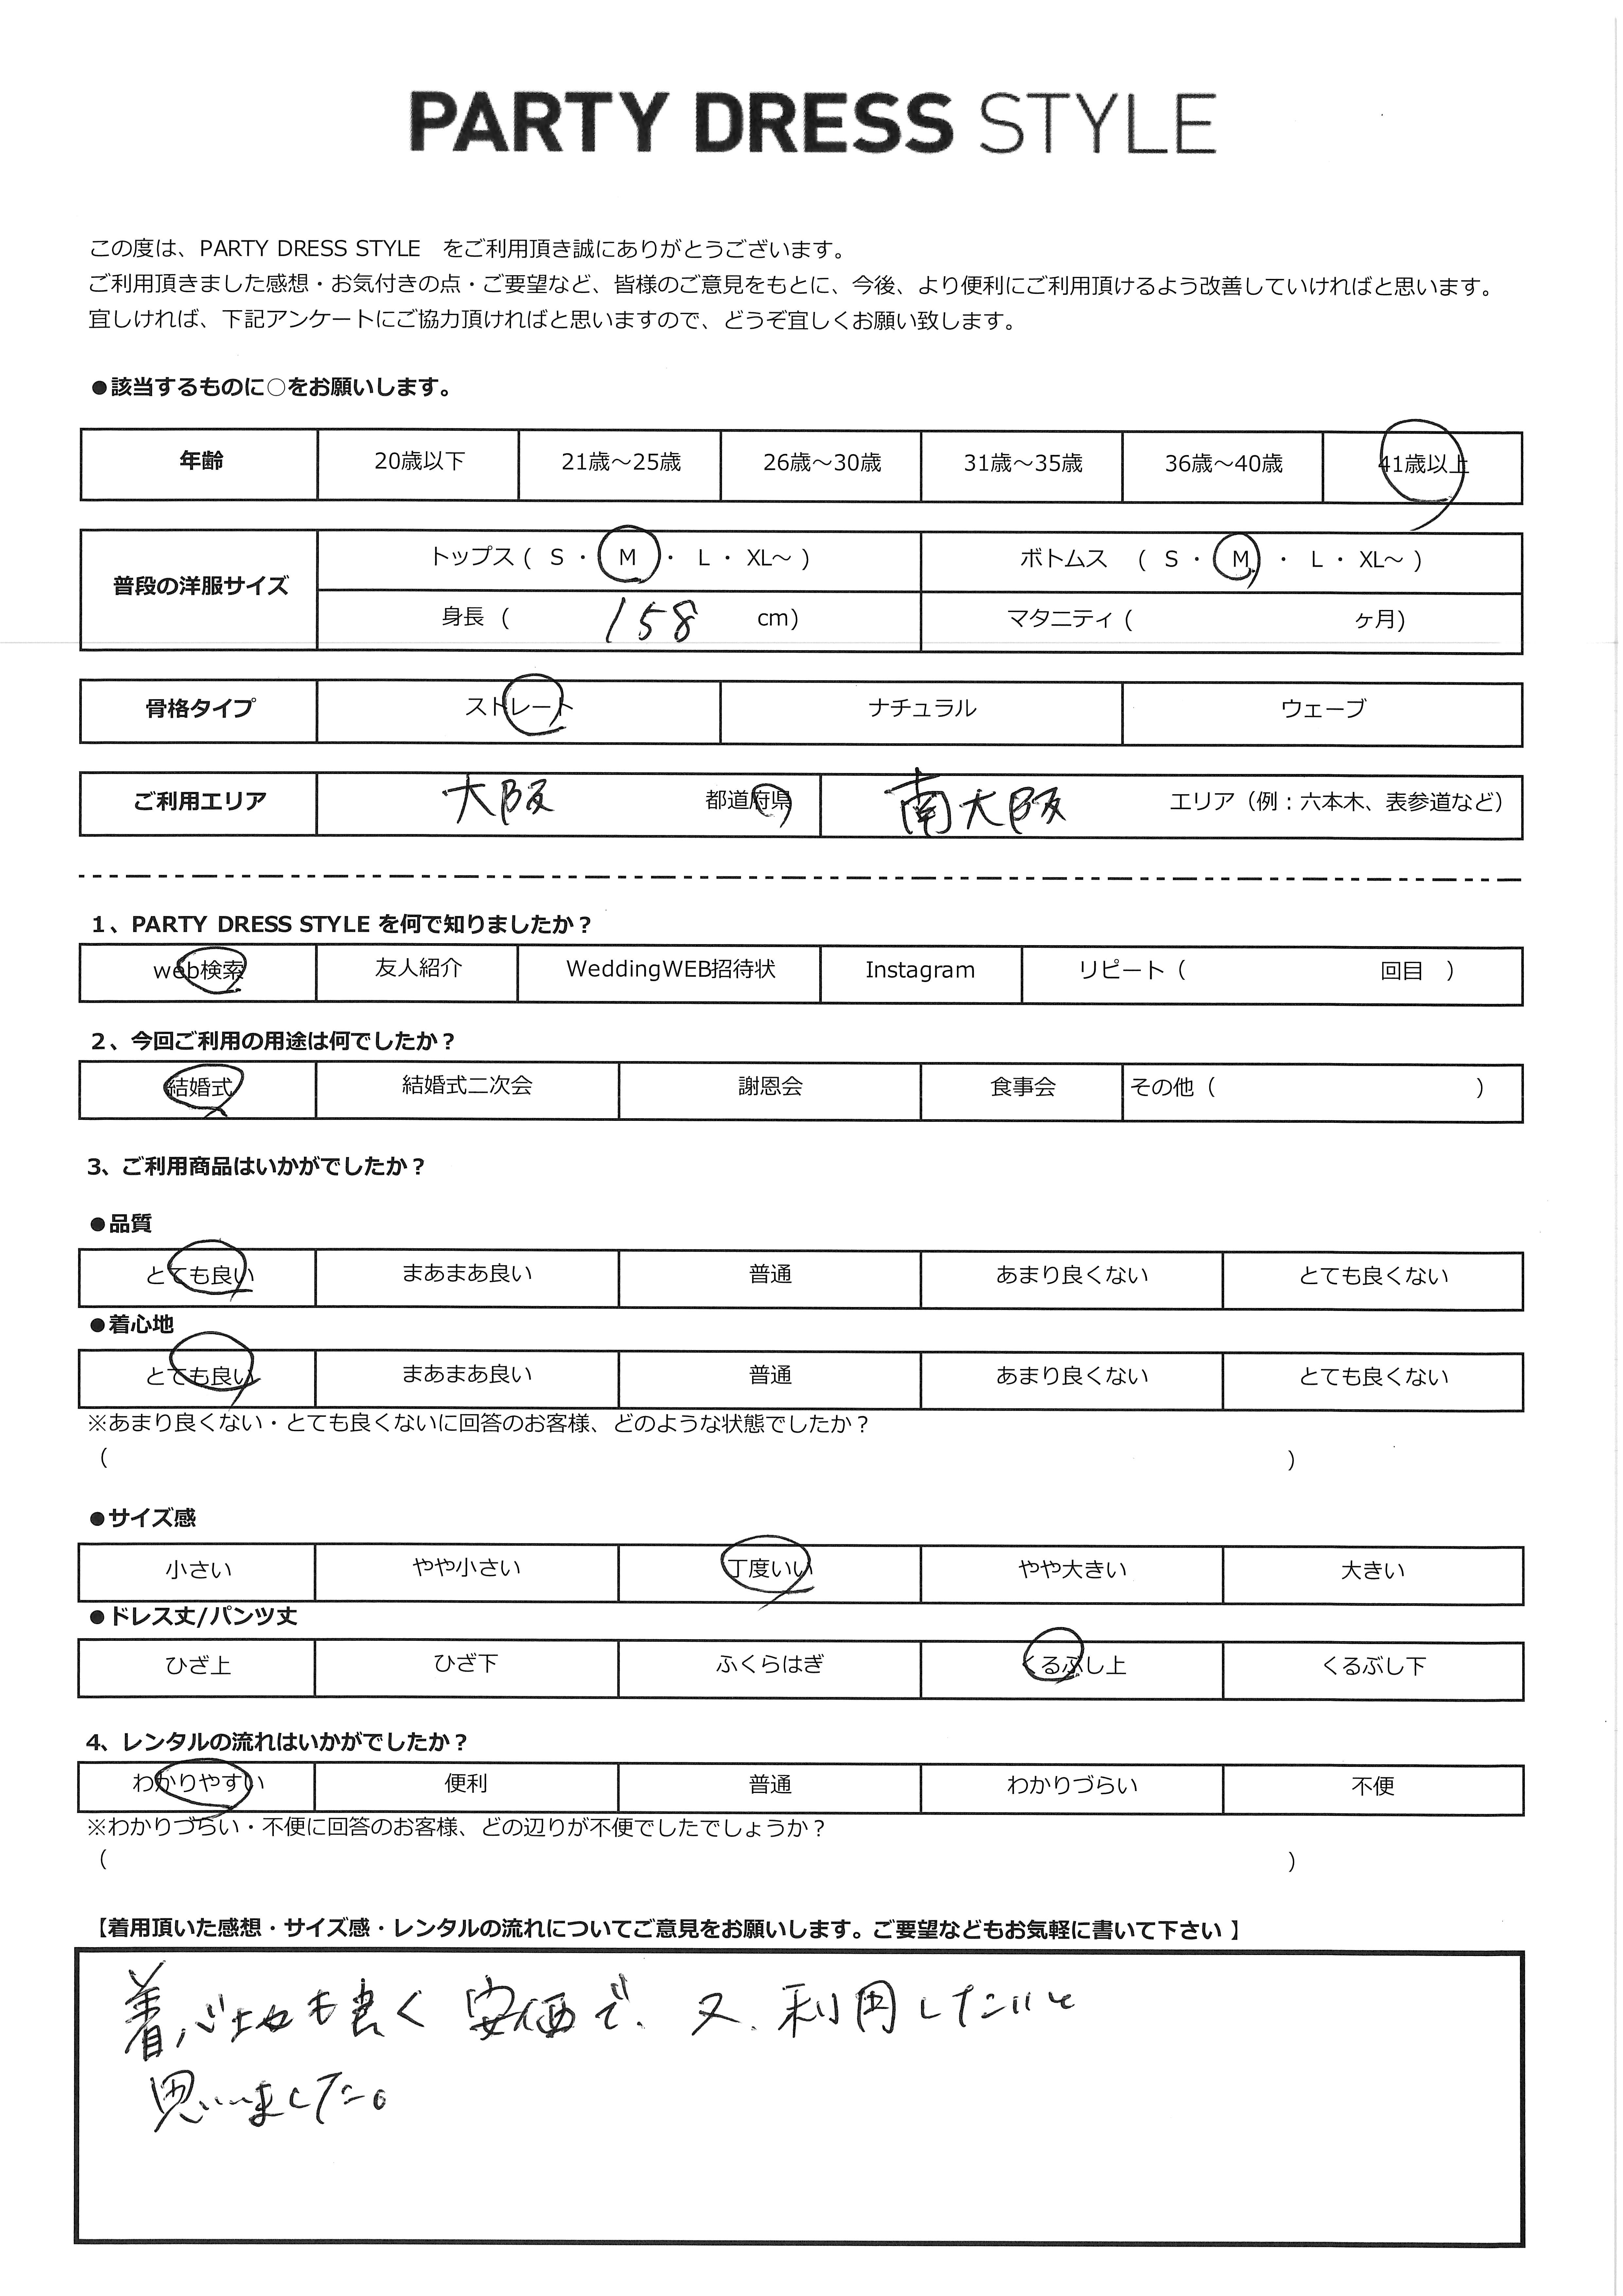 PARTY DRESS STYLE
この度は、PARTY DRESS STYLE　をご利用頂き誠にありがとうございます。
ご利用頂きました感想・お気付きの点・ご要望など、皆様のご意見をもとに、今後、より便利にご利用頂けるよう改善していければと思います。
宜しければ、下記アンケートにご協力頂ければと思いますので、どうぞ宜しくお願い致します。
●該当するものに○をお願いします。
年齢 20歳以下 21歳～25歳 26歳～30歳 31歳～35歳 36歳～40歳 41歳以上
普段の洋服サイズ
トップス ( S ・ M ・ L ・ XL～ ) ボトムス ( S ・ M ・ L ・ XL～ )
身長 ( 158 cm) マタニティ ( ヶ月)
骨格タイプ ストレート ナチュラル ウェーブ
ご利用エリア 大阪 都道府県 南大阪 エリア（例：六本木、表参道など）
1、PARTY DRESS STYLE を何で知りましたか？
web検索 友人紹介 WeddingWEB招待状 Instagram リピート（ 回目 ）
2、今回ご利用の用途は何でしたか？
結婚式 結婚式二次会 謝恩会 食事会 その他（ ）
3、ご利用商品はいかがでしたか？
●品質
とても良い まあまあ良い 普通 あまり良くない とても良くない
●着心地
とても良い まあまあ良い 普通 あまり良くない とても良くない
※あまり良くない・とても良くないに回答のお客様、どのような状態でしたか？
（ ）
●サイズ感
小さい やや小さい 丁度いい やや大きい 大きい
●ドレス丈/パンツ丈
ひざ上 ひざ下 ふくらはぎ くるぶし上 くるぶし下
4、レンタルの流れはいかがでしたか？
わかりやすい 便利 普通 わかりづらい 不便
※わかりづらい・不便に回答のお客様、どの辺りが不便でしたでしょうか？
（ ）
【着用頂いた感想・サイズ感・レンタルの流れについてご意見をお願いします。ご要望などもお気軽に書いて下さい 】
着心地も良く 安価で、又、利用したいと
思いました。